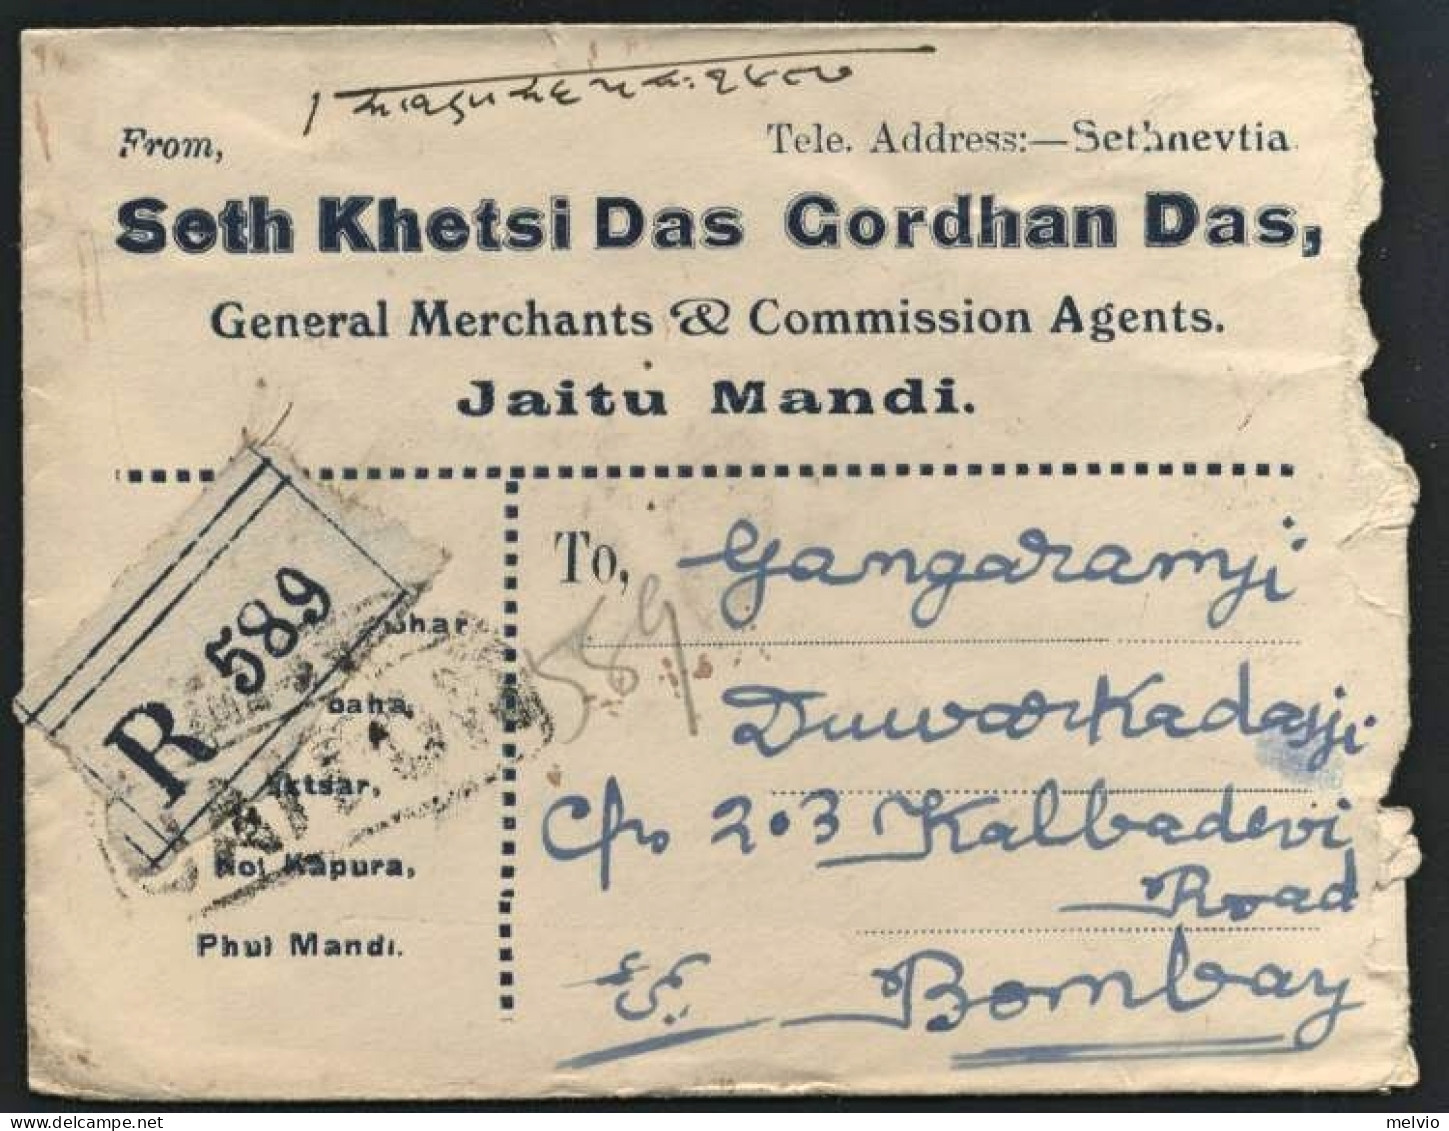 From,
Tele. Address:—Sethnevtia.
Seth Khetsi Das Gordhan Das,
General Merchants & Commission Agents.
Jaitu Mandi.
R 589
Kot Kapura,
Phul Mandi.
To, Gangaramji
589
Duwarkadasji
C/o 203 Kalbadevi
Road
Bombay
melvio